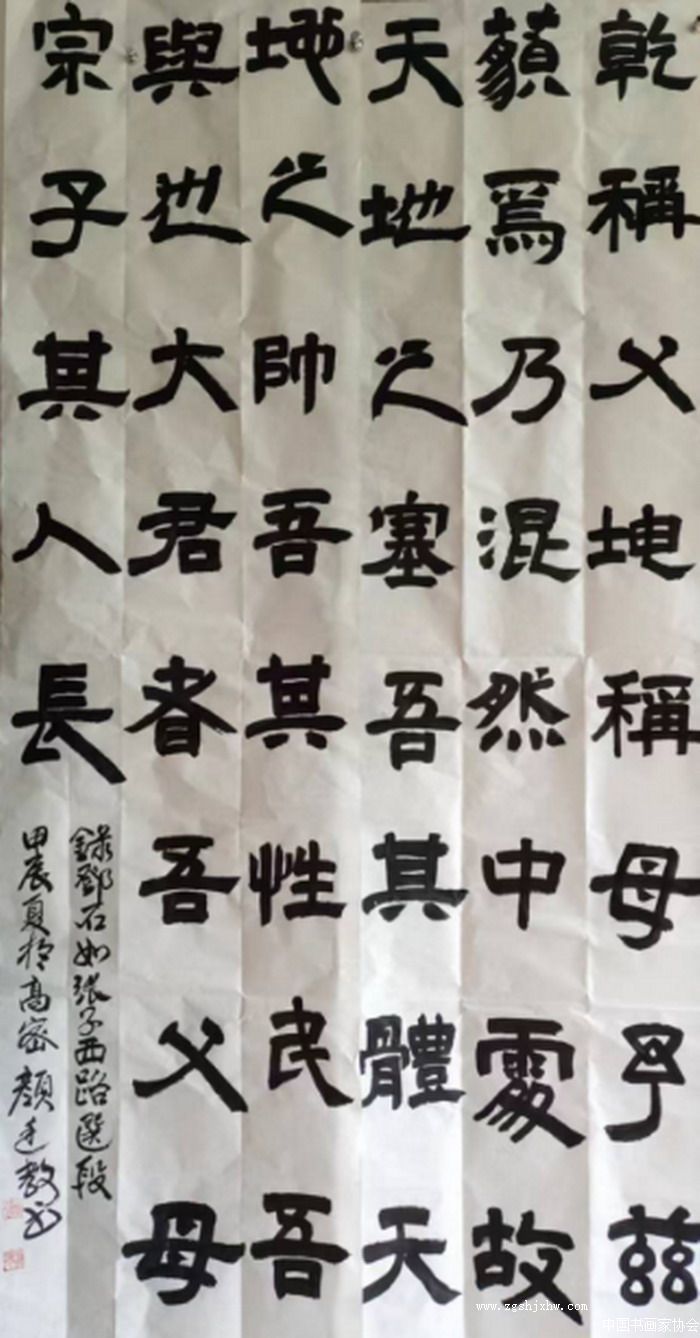 乾稱父坤稱母予茲
藐焉乃混然中處故
天地之塞吾其體天
地之帥吾其性民吾
與也大君者吾父母
宗子其人長
錄鄧石如張子西路選段
甲辰夏於高密顏廷教书
www.zgshjxhw.com
中国书画家协会